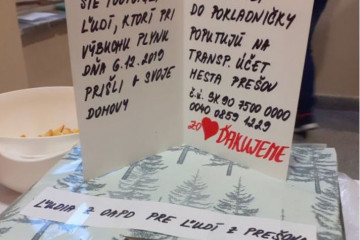 STE PODPORILI
ĽUDÍ, KTORÍ PRI
VÝBUCHU PLYNU
DŇA 6.12.2019
PRIŠLI O SVOJE
DOMOVY
DO POKLADNIČKY
POPUTUJÚ NA
TRANSP. ÚČET
MESTA PREŠOV
Č.Ú. SK90 7500 0000
0040 0859 1229
ĎAKUJEME
ĽUDIA Z OAPD PRE ĽUDÍ Z PREŠOVA